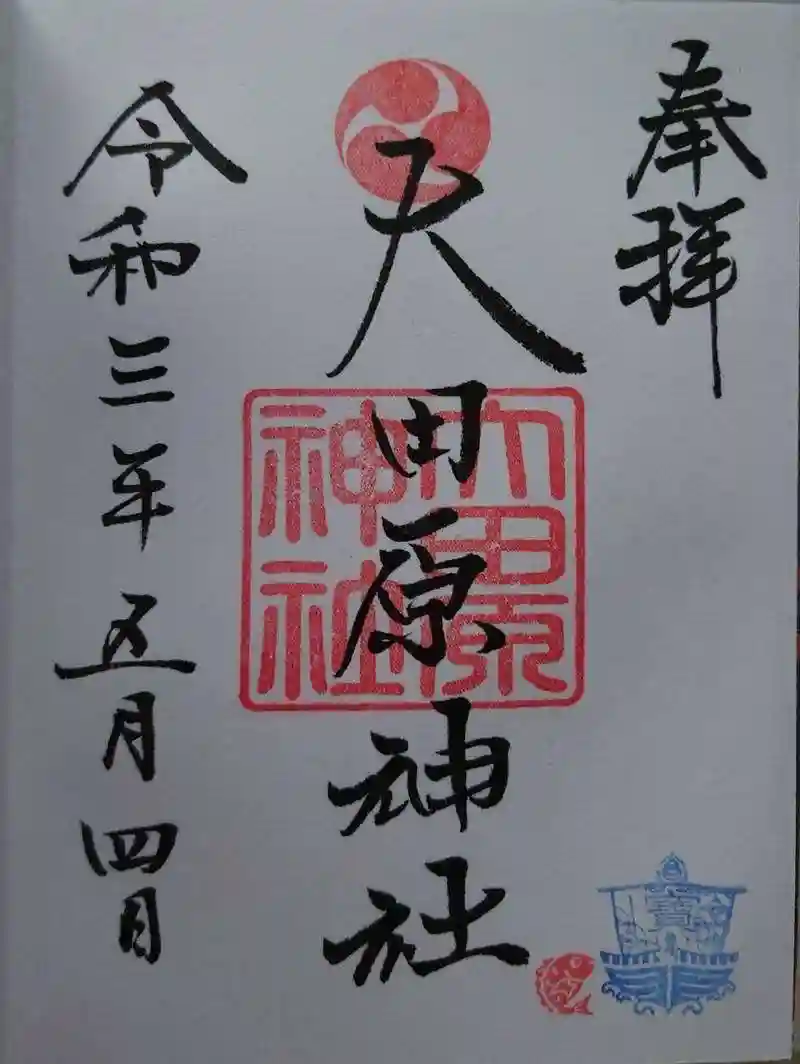 奉拝
大田原神社
令和三年五月四日
大田原
神社
寶